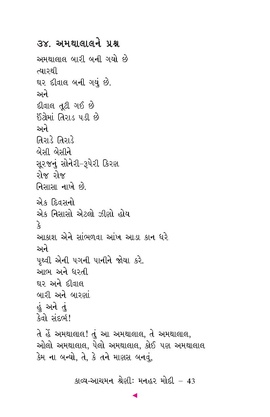 ૩૪. અમથાલાલને પ્રશ્ન
અમથાલાલ બારી બની ગયો છે
ત્યારથી
ઘર દીવાલ બની ગયું છે.
અને
દીવાલ તૂટી ગઈ છે
ઈંટોમાં તિરાડ પડી છે
અને
તિરાડે તિરાડે
બેસી બેસીને
સૂરજનું સોનેરી-રૂપેરી કિરણ
રોજ રોજ
નિસાસા નાખે છે.
એક દિવસનો
એક નિસાસો એટલો ઝીણો હોય
કે
આકાશ એને સાંભળવા આંખ આડા કાન ધરે
અને
પૃથ્વી એની પગની પાનીને જોયા કરે.
આભ અને ધરતી
ઘર અને દીવાલ
બારી અને બારણાં
હું અને તું
કેવો સંદર્ભ!
તે હેં અમથાલાલ! તું આ અમથાલાલ, તે અમથાલાલ,
ઓલો અમથાલાલ, પેલો અમથાલાલ, કોઈ પણ અમથાલાલ
કેમ ના બન્યો, તે, કે તને માણસ બનવું,
કાવ્ય-આચમન શ્રેણી: મનહર મોદી – 43